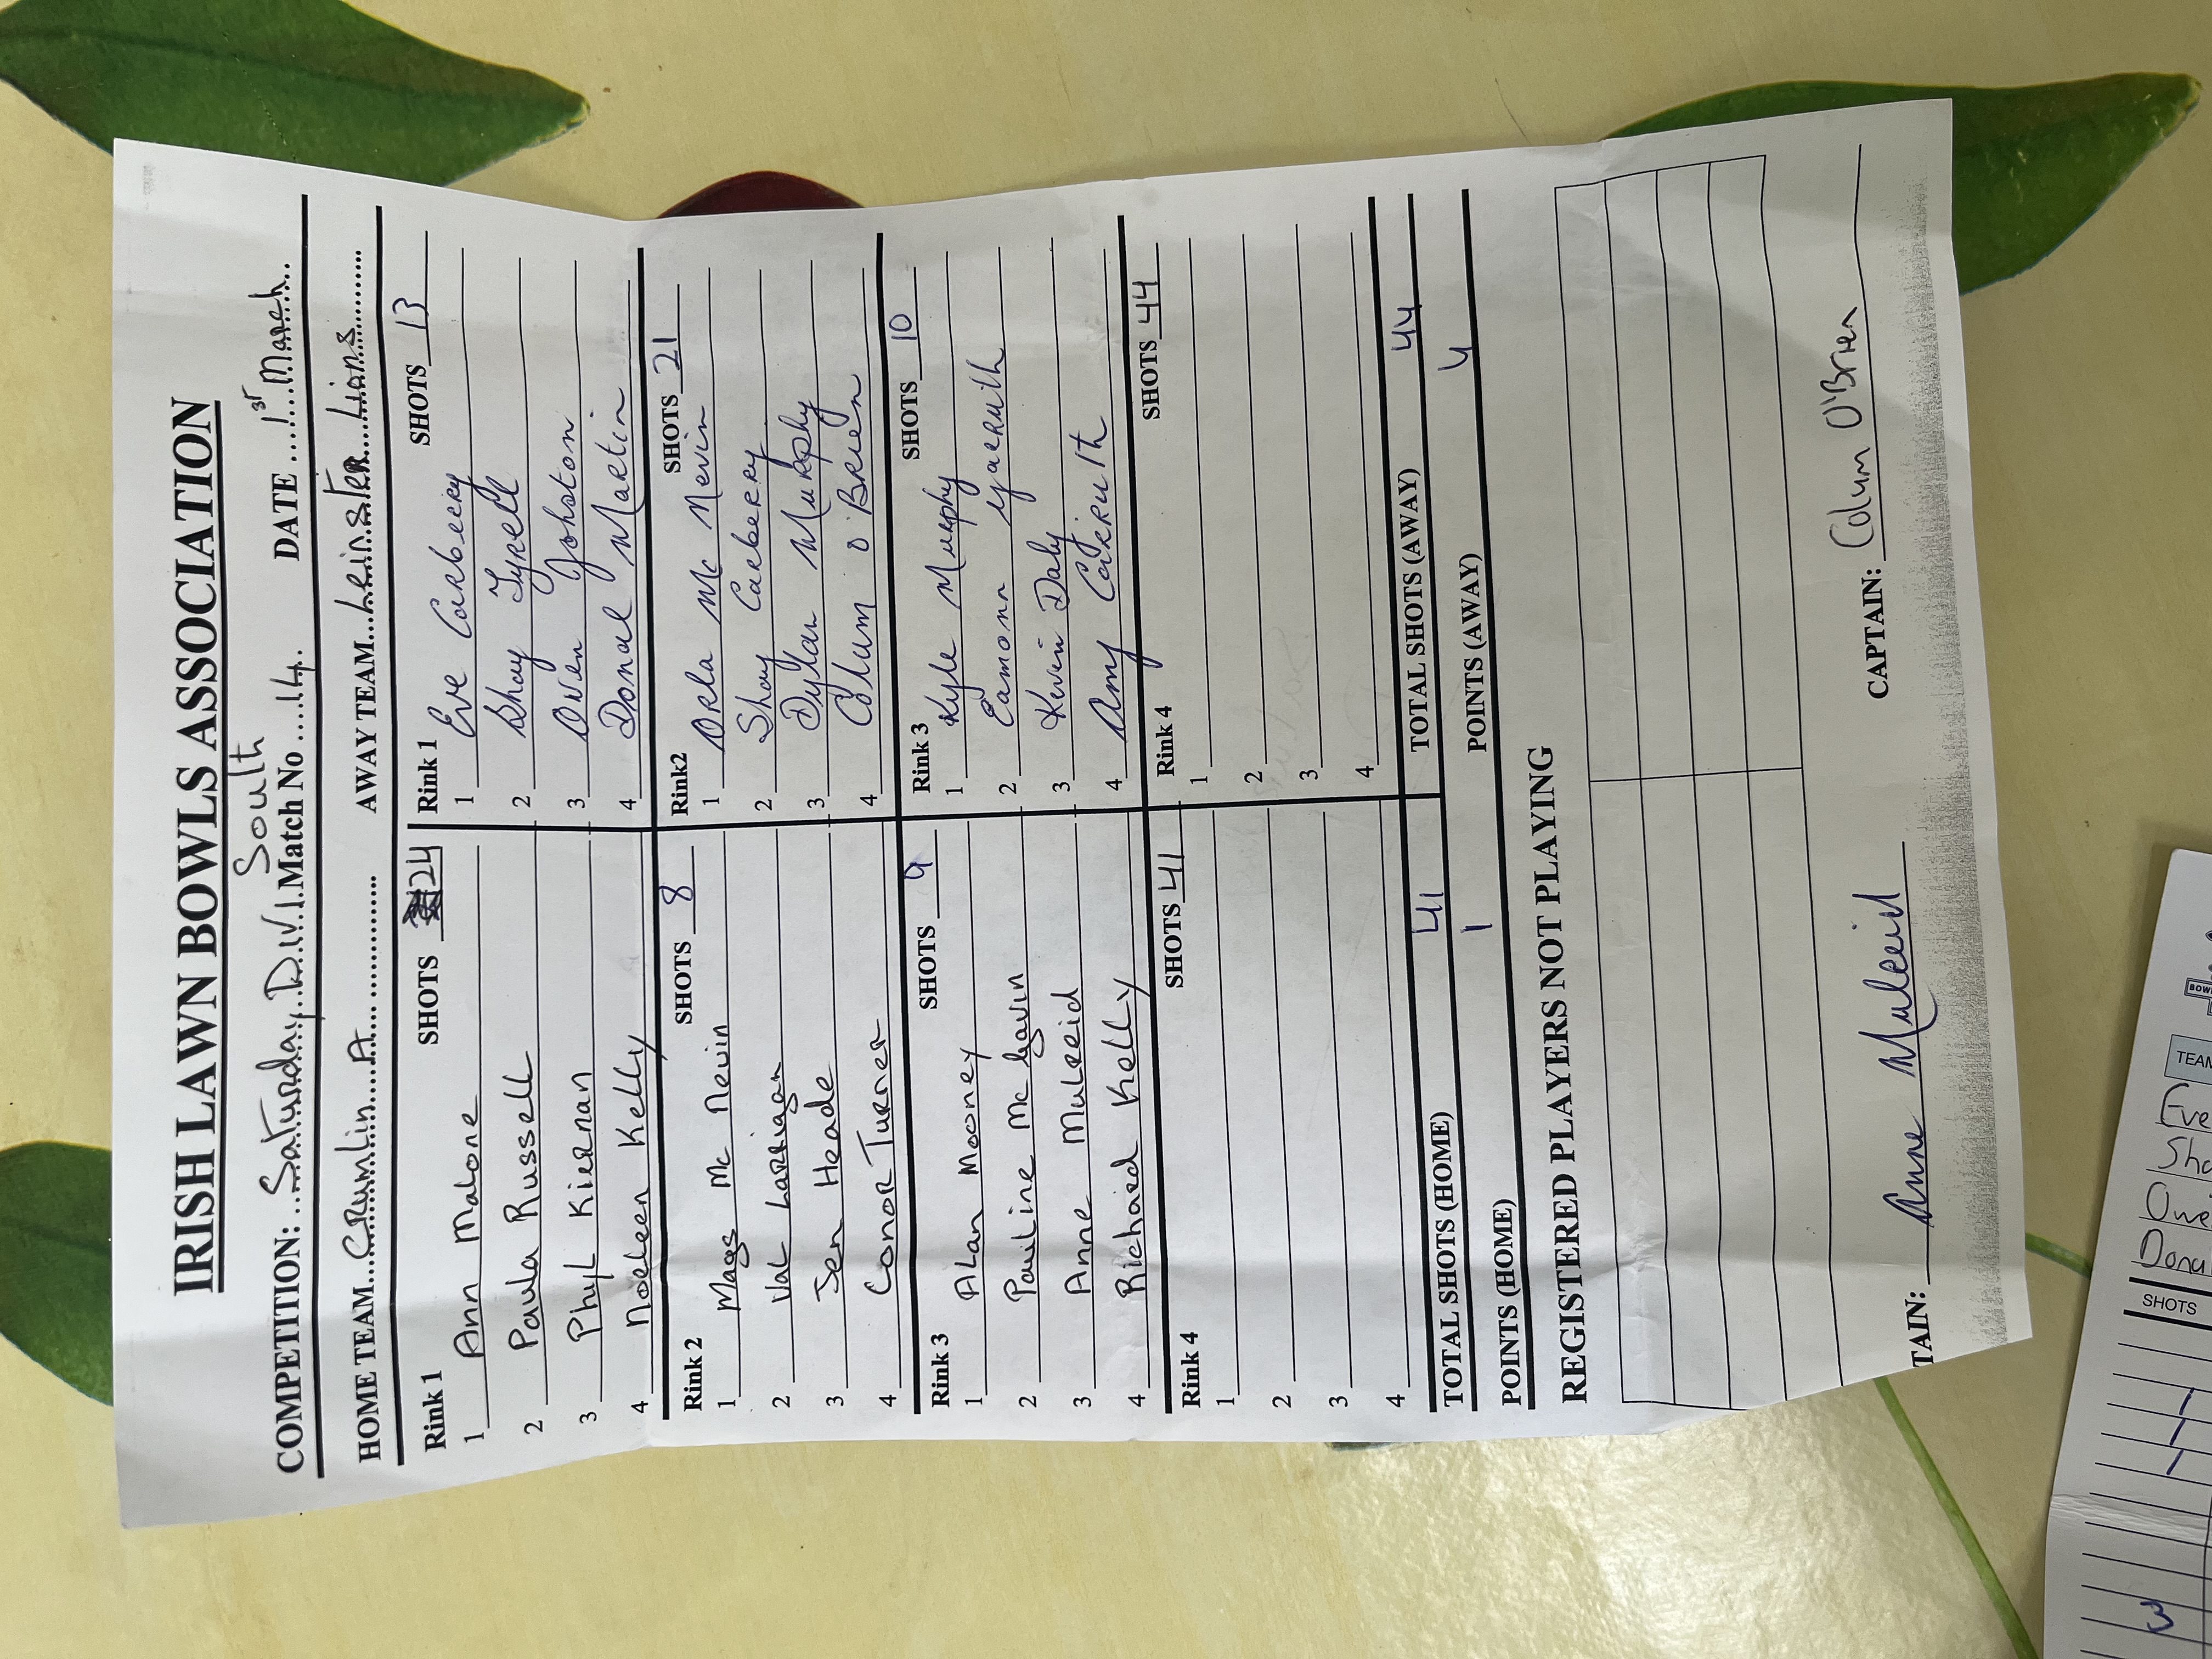 IRISH LAWN BOWLS ASSOCIATION
South
COMPETITION: Saturday Div 1 Match No 14. DATE 1st March
HOME TEAM Crumlin A AWAY TEAM Leinster Lions
Rink 1 SHOTS 24
1 Ann Malone
2 Paula Russell
3 Phyl Kiernan
4 Noeleen Kelly
Rink 1 SHOTS 13
1 Eve Carberry
2 Shay Tyrell
3 Owen Johston
4 Donal Martin
Rink 2 SHOTS 8
1 Mags Mc Nevin
2 Val Larrigan
3 Jen Heade
4 Conor Turner
Rink2 SHOTS 21
1 Orla Mc Nevin
2 Shay Carberry
3 Dylan Murphy
4 Colum O'Brien
Rink 3 SHOTS 9
1 Alan Mooney
2 Pauline Mc Gavin
3 Anne Mulreid
4 Richard Kelly
Rink 3 SHOTS 10
1 Kyle Murphy
2 Eamonn
3 Kevin Daly
4 Amy Carruth
Rink 4 SHOTS 41
1
2
3
4
Rink 4 SHOTS 44
1
2
3
4
TOTAL SHOTS (HOME) 41 TOTAL SHOTS (AWAY) 44
POINTS (HOME) 1 POINTS (AWAY) 4
REGISTERED PLAYERS NOT PLAYING
TAIN: Anne Mulreid CAPTAIN: Colum O'Brien
BOW
TEAM
Eve
Sha
Owe
Dona
SHOTS
3